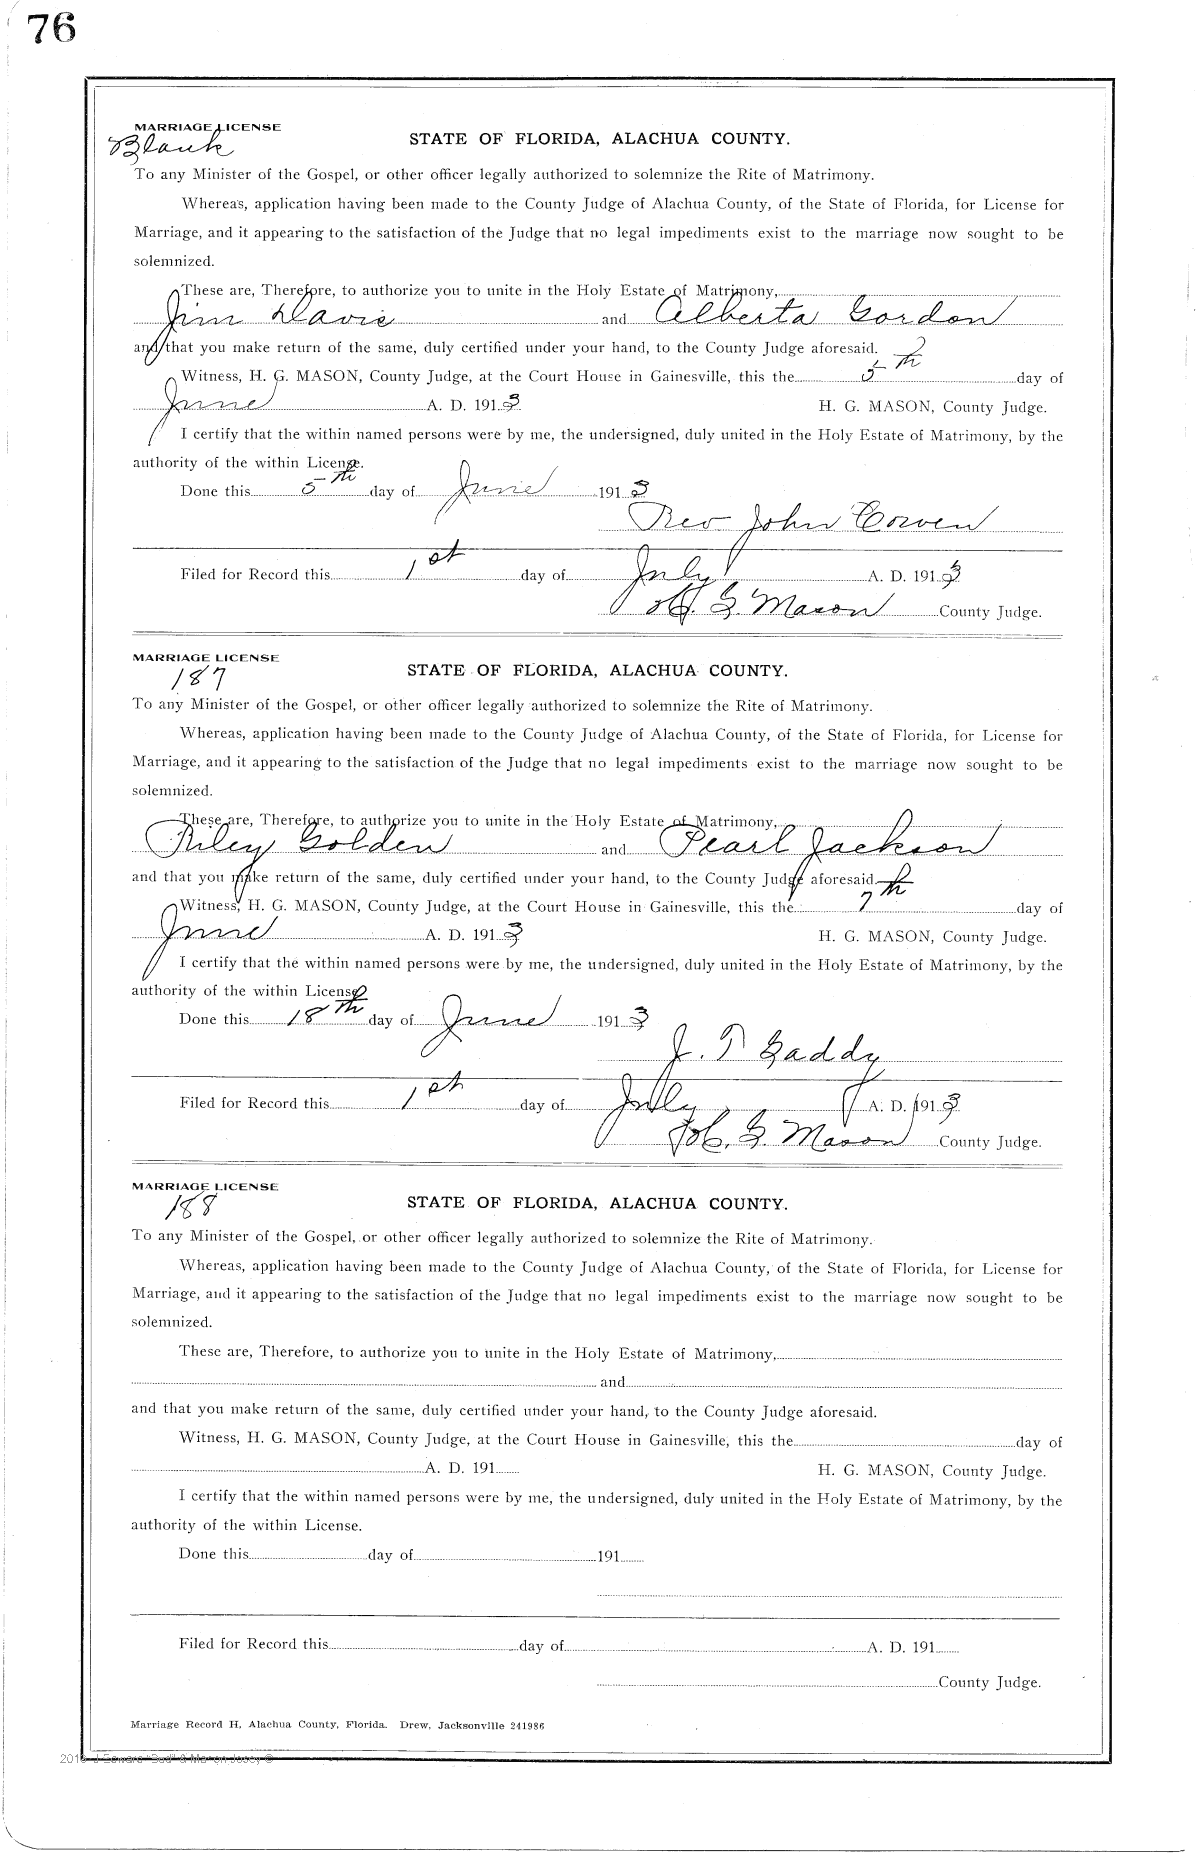 76
MARRIAGE LICENSE
Blank
STATE OF FLORIDA, ALACHUA COUNTY.
To any Minister of the Gospel, or other officer legally authorized to solemnize the Rite of Matrimony.
Whereas, application having been made to the County Judge of Alachua County, of the State of Florida, for License for
Marriage, and it appearing to the satisfaction of the Judge that no legal impediments exist to the marriage now sought to be
solemnized.
These are, Therefore, to authorize you to unite in the Holy Estate of Matrimony,
Jim Davis and Alberta Gordon
and that you make return of the same, duly certified under your hand, to the County Judge aforesaid.
Witness, H. G. MASON, County Judge, at the Court House in Gainesville, this the 5th day of
June A. D. 1913 H. G. MASON, County Judge.
I certify that the within named persons were by me, the undersigned, duly united in the Holy Estate of Matrimony, by the
authority of the within License.
Done this 5th day of June 1913
Rev John Cowen
Filed for Record this 1st day of July A. D. 1913
H. G. Mason County Judge.
MARRIAGE LICENSE
187
STATE OF FLORIDA, ALACHUA COUNTY.
To any Minister of the Gospel, or other officer legally authorized to solemnize the Rite of Matrimony.
Whereas, application having been made to the County Judge of Alachua County, of the State of Florida, for License for
Marriage, and it appearing to the satisfaction of the Judge that no legal impediments exist to the marriage now sought to be
solemnized.
These are, Therefore, to authorize you to unite in the Holy Estate of Matrimony,
Riley Golden and Pearl Jackson
and that you make return of the same, duly certified under your hand, to the County Judge aforesaid.
Witness, H. G. MASON, County Judge, at the Court House in Gainesville, this the 7th day of
June A. D. 1913 H. G. MASON, County Judge.
I certify that the within named persons were by me, the undersigned, duly united in the Holy Estate of Matrimony, by the
authority of the within License
Done this 18th day of June 1913
J. T Gaddy
Filed for Record this 1st day of July A. D. 1913
H. G. Mason County Judge.
MARRIAGE LICENSE
188
STATE OF FLORIDA, ALACHUA COUNTY.
To any Minister of the Gospel, or other officer legally authorized to solemnize the Rite of Matrimony.
Whereas, application having been made to the County Judge of Alachua County, of the State of Florida, for License for
Marriage, and it appearing to the satisfaction of the Judge that no legal impediments exist to the marriage now sought to be
solemnized.
These are, Therefore, to authorize you to unite in the Holy Estate of Matrimony,
and
and that you make return of the same, duly certified under your hand, to the County Judge aforesaid.
Witness, H. G. MASON, County Judge, at the Court House in Gainesville, this the day of
A. D. 191 H. G. MASON, County Judge.
I certify that the within named persons were by me, the undersigned, duly united in the Holy Estate of Matrimony, by the
authority of the within License.
Done this day of 191
Filed for Record this day of A. D. 191
County Judge.
Marriage Record H, Alachua County, Florida. Drew, Jacksonville 241986